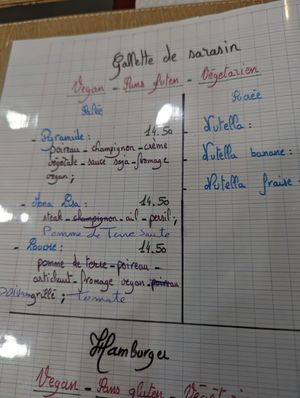 Gallette de sarasin
Vegan - Sans gluten - Végétarien
Salée
Sucrée
- Pyramide : 14.50
poireau - champignon - crème
végétale - sauce soja - fromage
vegan ;
- Mona Lisa : 14.50
steak - champignon - ail - persil ;
Pomme de Terre Sauté
- Louvre : 14.50
pomme de terre - poireau -
artichaut - fromage vegan - poireau
grillé ; Tomate
- Nutella :
- Nutella banane :
- Nutella fraise :
Hamburger
Vegan - Sans gluten -